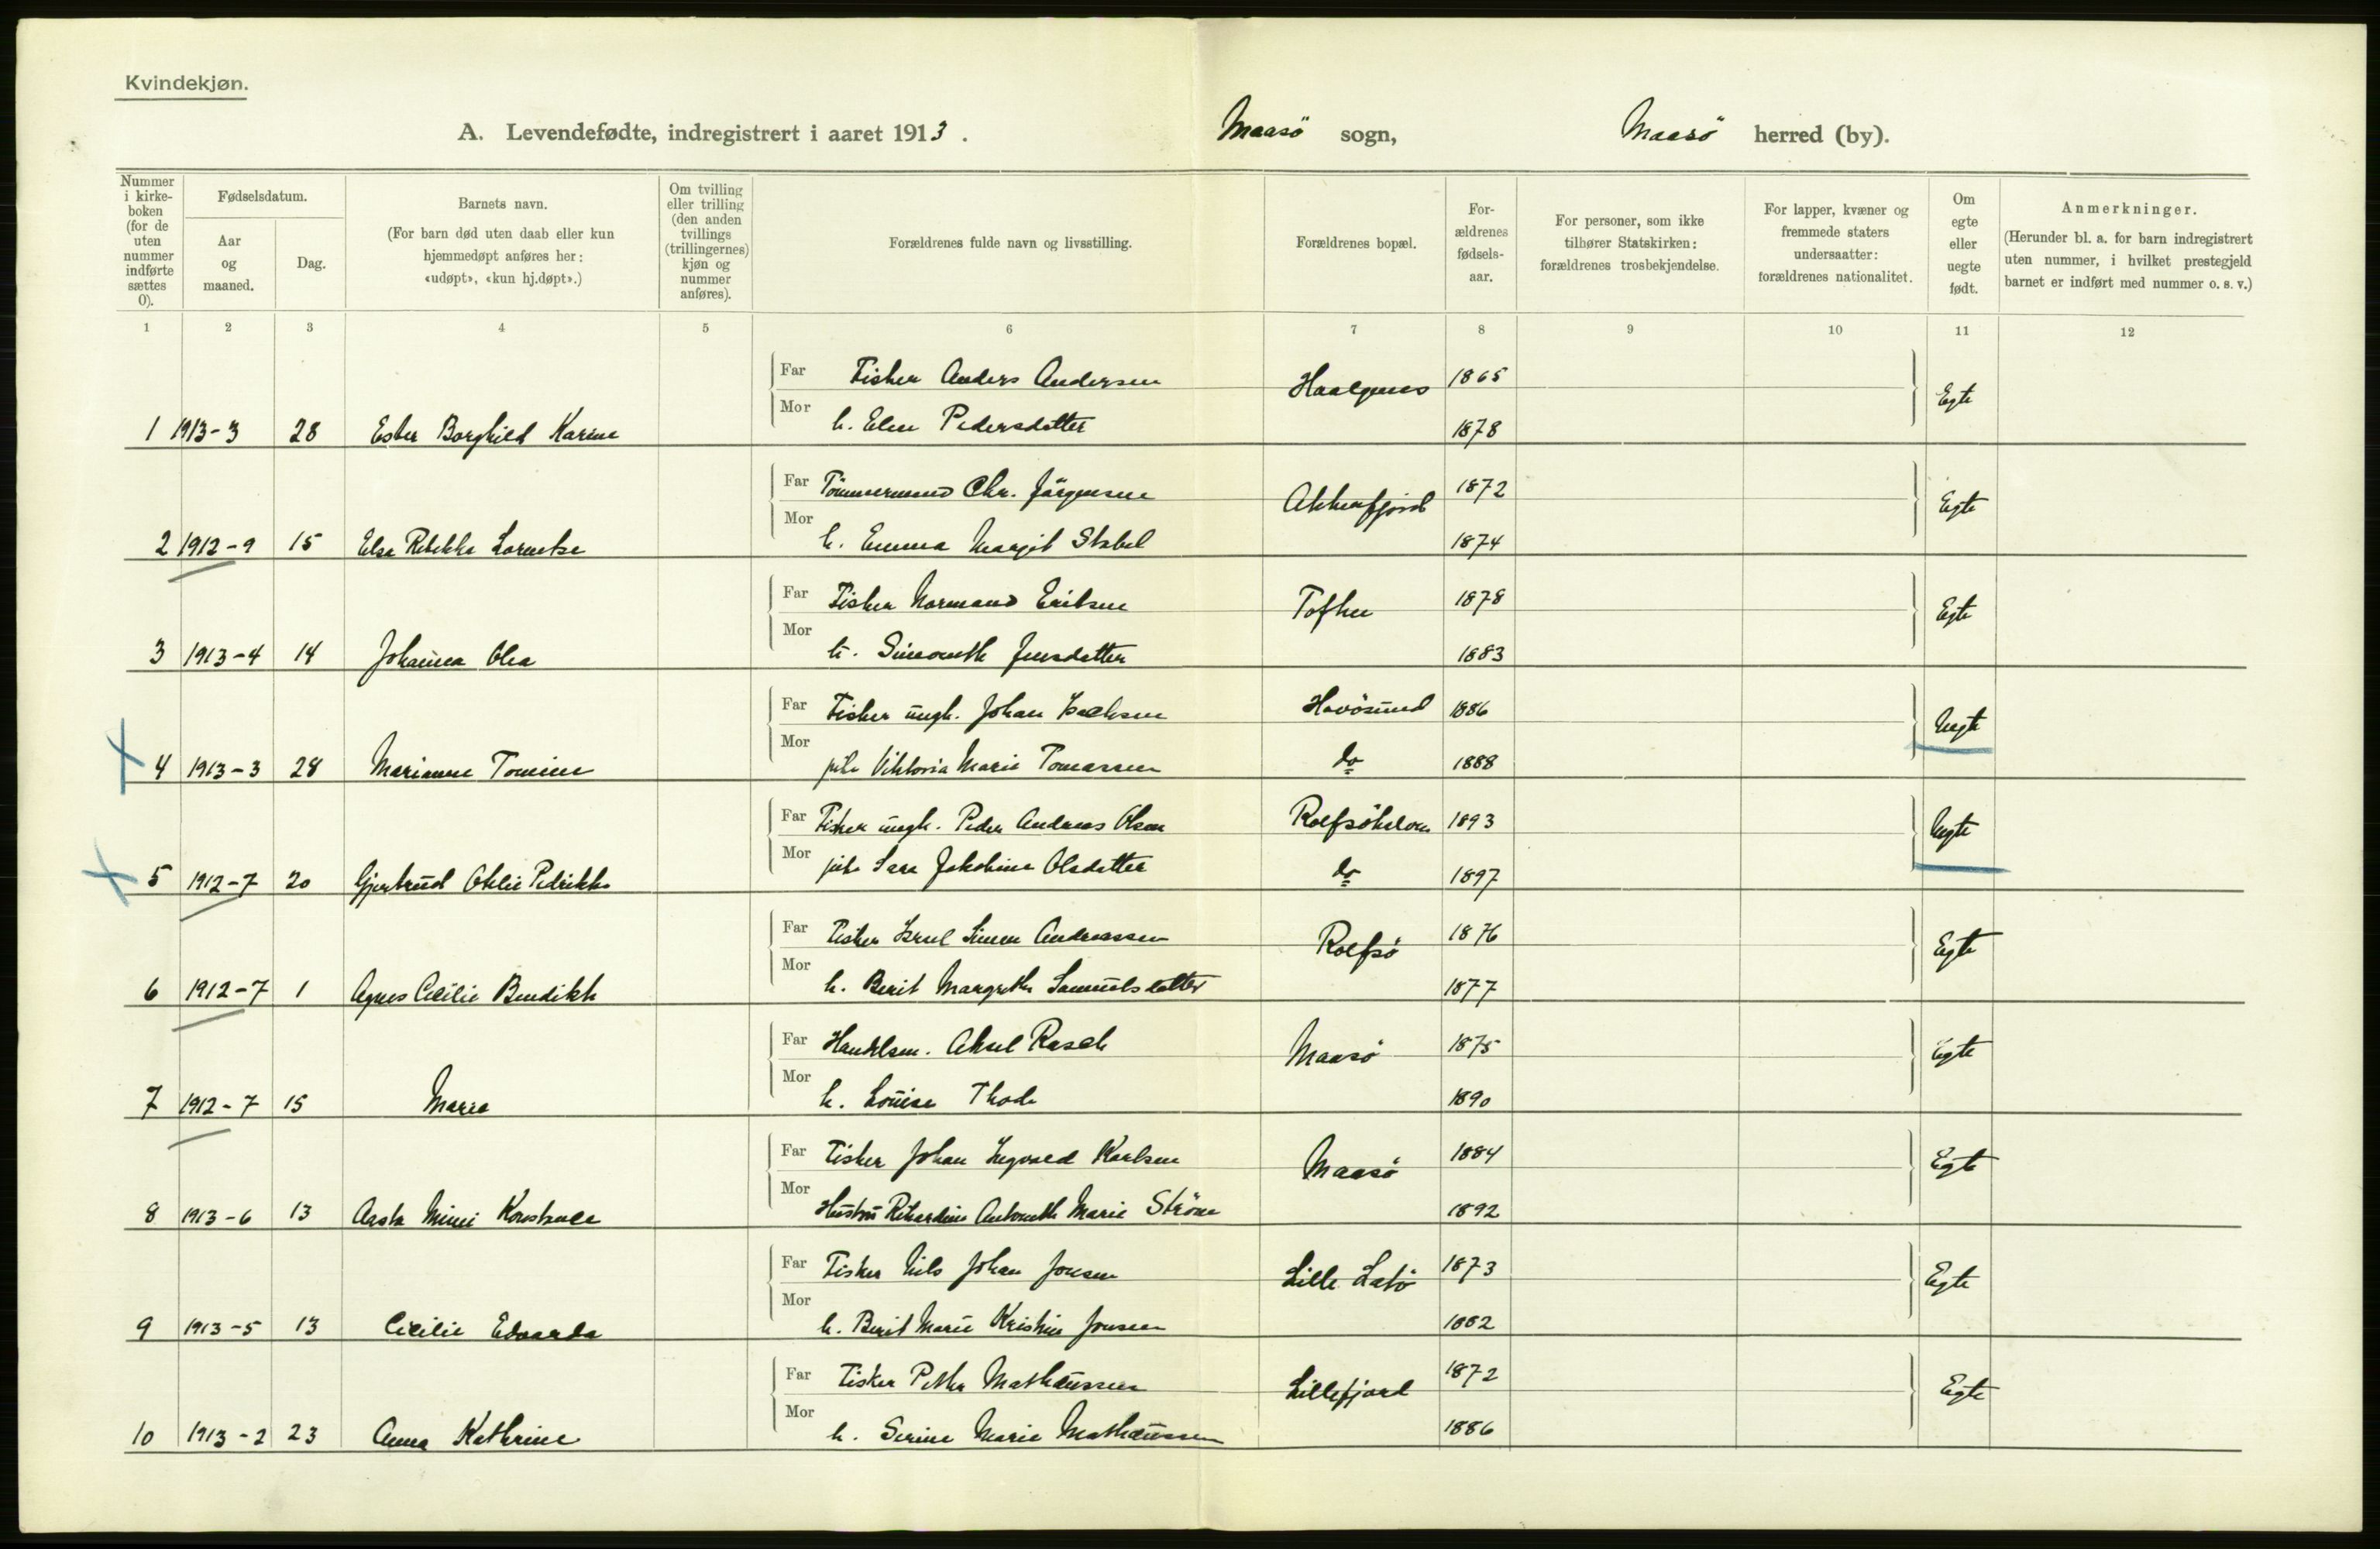 Kvindekjøn.
A. Levendefødte, indregistrert i aaret 1913. Maasö sogn, Maasö herred (by).
Nummer i kirke-boken (for de uten nummer indførte sættes 0).
Fødselsdatum.
Aar og maaned.
Dag.
Barnets navn.
(For barn død uten daab eller kun hjemmedøpt anføres her: «udøpt», «kun hj.døpt».)
Om tvilling eller trilling (den anden tvillings (trillingernes) kjøn og nummer anføres).
Forældrenes fulde navn og livsstilling.
Forældrenes bopæl.
For-ældrenes fødsels-aar.
For personer, som ikke tilhører Statskirken: forældrenes trosbekjendelse.
For lapper, kvæner og fremmede staters undersaatter: forældrenes nationalitet.
Om egte eller uegte født.
Anmerkninger.
(Herunder bl. a. for barn indregistrert uten nummer, i hvilket prestegjeld barnet er indført med nummer o. s. v.)
1 2 3 4 5 6 7 8 9 10 11 12
Far Fisker Anders Andersen 1865 Egte
1 1913-3 28 Ester Borghild Karine Mor h. Elen Pedersdatter 1878
Far Tömmermand Chr. Jörgensen Akkarfjord 1872 Egte
2 1912-9 15 Elsa Rebekka Mor h. Emma Margit Stabel 1874
Far Fisker Normand Eriksen 1878 Egte
3 1913-4 14 Johanna Olea Mor h. Jensdatter 1883
Far Fisker ungk. Johan Isaksen Havösund 1886 Uegte
4 1913-3 28 Marianne Tomine Mor pike Viktoria Marie Tomassen do 1888
Far Fisker ungk. Peder Andreas Olsen 1893 Uegte
5 1912-7 20 Gjertrud Petrikke Mor pike Sara Jakobine Olsdatter do 1897
Far Fisker Simon Andreassen Rolfsö 1876 Egte
6 1912-7 1 Agnes Cecilie Bendikte Mor h. Berit Margrethe Samuelsdatter 1877
Far Handelsm. Aksel Rasch Maasö 1875 Egte
7 1912-7 15 Maria Mor h. Louise Thode 1890
Far Fisker Johan Ingvald Karlsen Maasö 1884 Egte
8 1913-6 13 Aasta Mimi Konstance Mor Hustru Rikardine Antonette Marie Ström 1892
Far Fisker Nils Johan Jonsen Lille Latö 1873 Egte
9 1913-5 13 Cecilie Edvarda Mor h. Berit Marie Kristine Jonsen 1882
Far Fisker Petter Mathæussen Lillefjord 1872 Egte
10 1913-2 23 Anna Kathrine Mor h. Serine Marie Mathæussen 1886